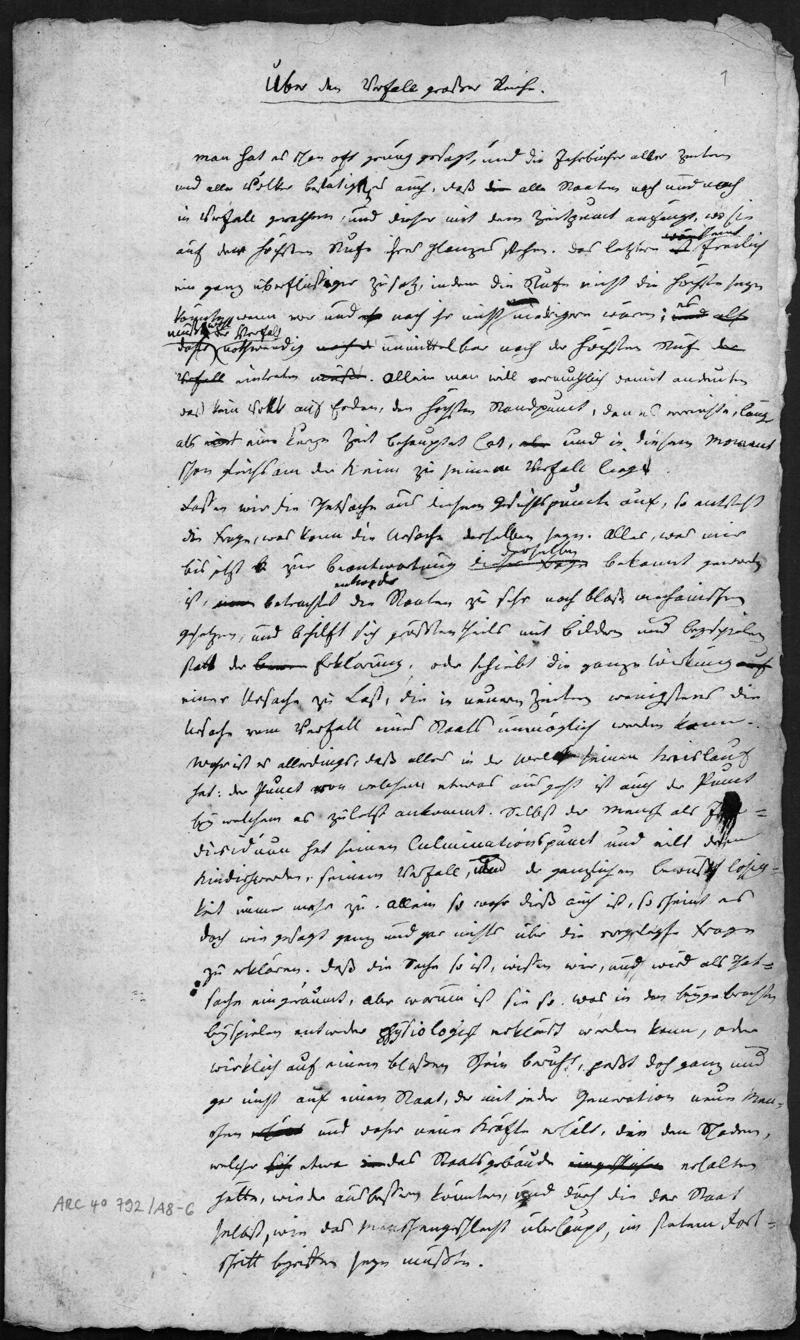 Über den Verfall großer Reiche.
1
man hat es schon oft genug gesagt, und die Jahrbücher aller Zeiten
und aller Völker bestätigen es auch, daß die alle Staaten nach und nach
in Verfall gerathen, und dieser mit dem Zeitpunct anfängt, wo sie
auf der höchsten Stufe ihres Glanzes stehen. das letztere freilich
ein ganz überflüssiger Zusatz, indem die Stufe nicht die höchste seyn
könnte, wenn vor und nach ihr nicht niedrigere wären; und also
der Verfall
daher nothwendig unmittelbar nach der höchsten Stufe der
Verfall eintreten müßte. Allein man will vermuthlich damit andeuten
das kein Volk auf Erden, den höchsten Standpunct, den es erreichte, länger
als eine kurze Zeit behauptet hat, und in diesem Moment
schon gleichsam der Keim zu seinem Verfall liegt.
Fassen wir die Thatsache aus diesem Gesichtspuncte auf, so entsteht
die Frage, was kann die Ursache derselben seyn. Alles, was mir
derselben
bis jetzt zur Beantwortung dieser Frage bekannt geworden
entweder
ist, betrachtet die Staaten zu sehr nach bloß mechanischen
gesetzen, und behilft sich größtentheils mit Bildern und Beyspielen
statt der Erklärung, oder schiebt die ganze Wirkung auf
einer Ursache zu Last, die in neuern Zeiten wenigstens die
Ursache vom Verfall eines Staats unmöglich werden kann.
Wahr ist es allerdings, daß alles in der Welt seinen Kreislauf
hat: der Punct von welchem etwas ausgeht ist auch der Punct
bey welchem es zuletzt ankommt. Selbst der Mensch als In=
dividuum hat seinen Culminationspunct und eilt dem
Kindischwerden, seinem Verfall, und der gänzlichen bewußtlosig=
keit immer mehr zu. Allein so wahr dieß auch ist, so scheint es
doch wie gesagt ganz und gar nichts über die vorgelegte Frage
zu erklären. Daß die Sache so ist, wissen wir, und wird als That=
sache eingeräumt, aber warum ist sie so. was in den beygebrachten
beyspielen entweder physiologisch erklärt werden kann, oder
wirklich auf einem bloßen Schein beruht, paßt doch ganz und
gar nicht auf einen Staat, der mit jeder Generation neue Men=
schen und daher neue Kräfte erhält, die den Schaden,
welchen sich etwa in das Staatsgebäude erhalten
hätte, wieder ausbessern könnten, und durch die der Staat
selbst, wie das Menschengeschlecht überhaupt, im stetem Fort=
schritt begriffen seyn müßte.
ARC 4° 792/A8-6